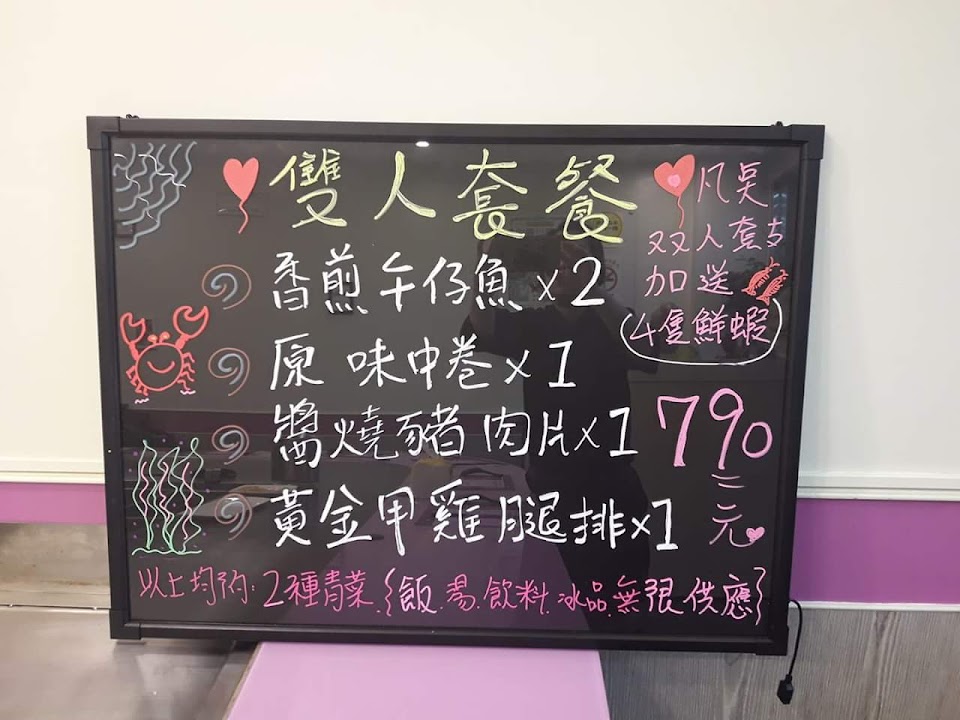 雙人套餐
香煎午仔魚x2
原味中卷x1
醬燒豬肉片x1
黃金甲雞腿排x1
凡吳
双人套支
加送
4隻鮮蝦
790
元
以上均附:2種青菜.{飯.湯.飲料.冰品.無限供應}